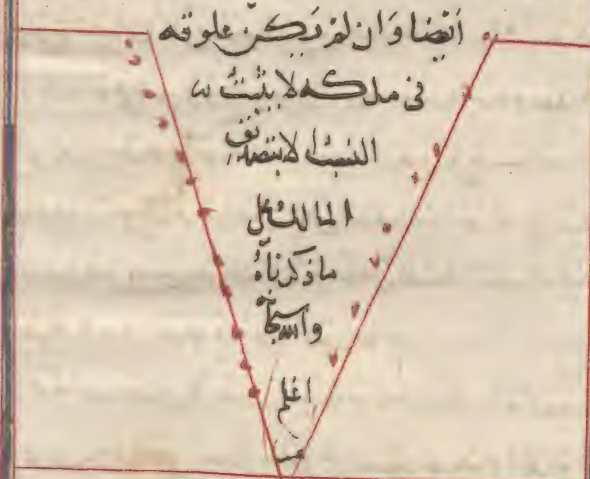 أيضا وَان لم يكن علوقه
في ملكه لا يثبت
النسب الا بتصديق
المالك على
ما ذكرناهُ
والله سبحانه
اعلم
تمت